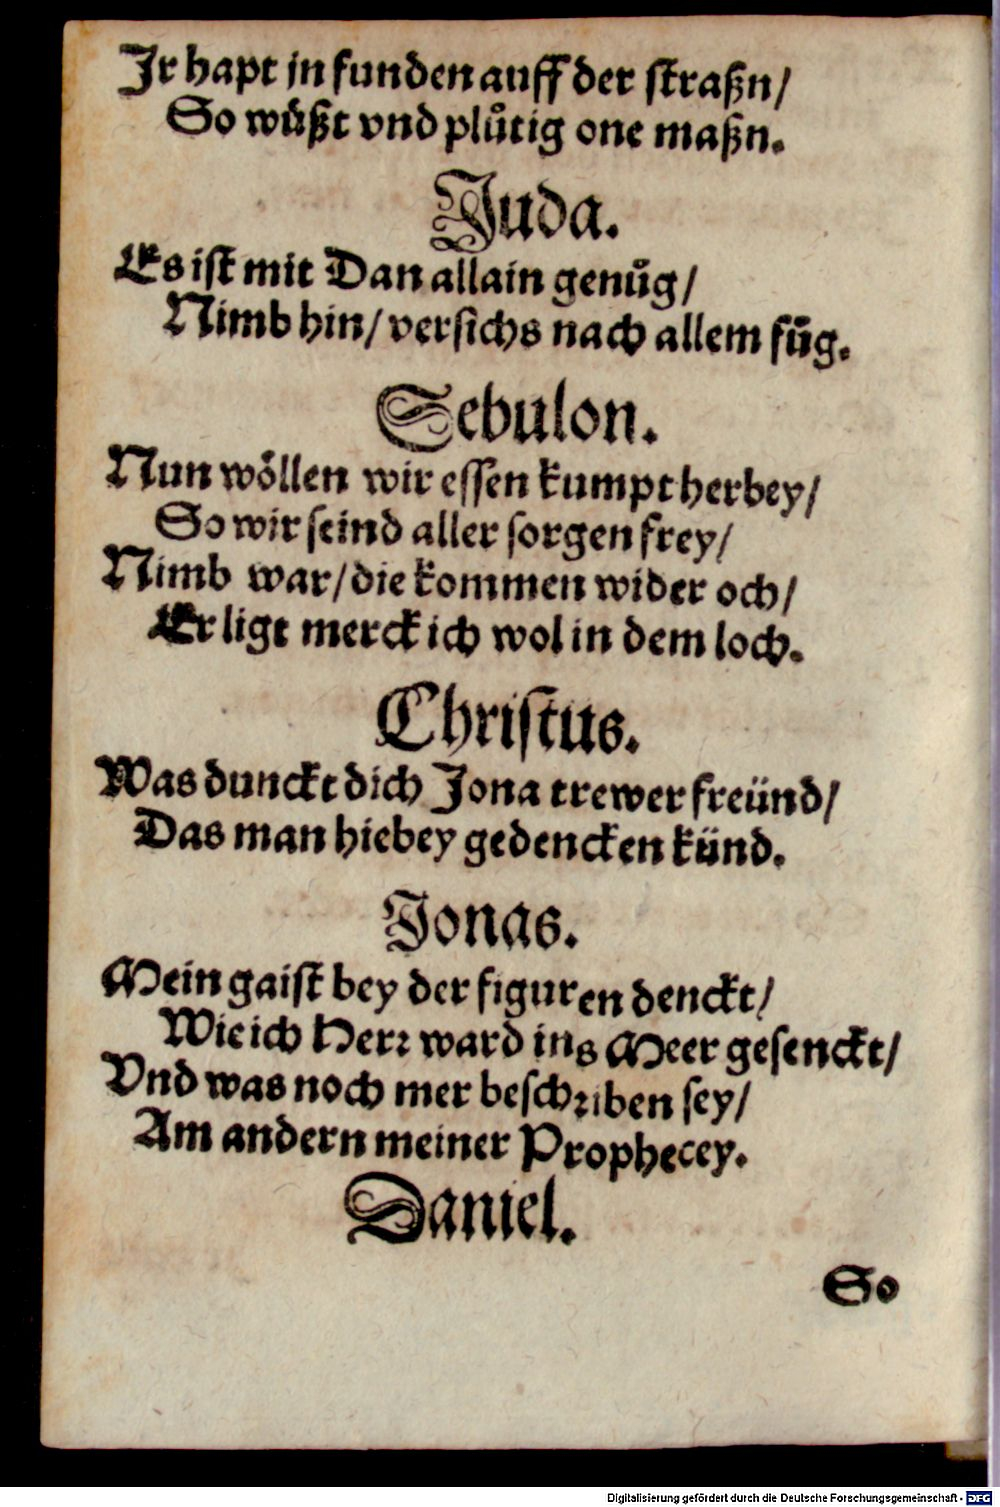 Jr hapt jn funden auff der straßn/
So wůßt vnd plůtig one maßn.
Juda.
Es ist mit Dan allain genůg/
Nimb hin/ versichs nach allem fůg.
Sebulon.
Nun wöllen wir essen kumpt herbey/
So wir seind aller sorgen frey/
Nimb war/ die kommen wider och/
Er ligt merck ich wol in dem loch.
Christus.
Was dunckt dich Jona trewer freünd/
Das man hiebey gedencken künd.
Jonas.
Mein gaist bey der figuren denckt/
Wie ich Herr ward ins Meer gesenckt/
Vnd was noch mer beschriben sey/
Am andern meiner Prophecey.
Daniel.
So
Digitalisierung gefördert durch die Deutsche Forschungsgemeinschaft - DFG